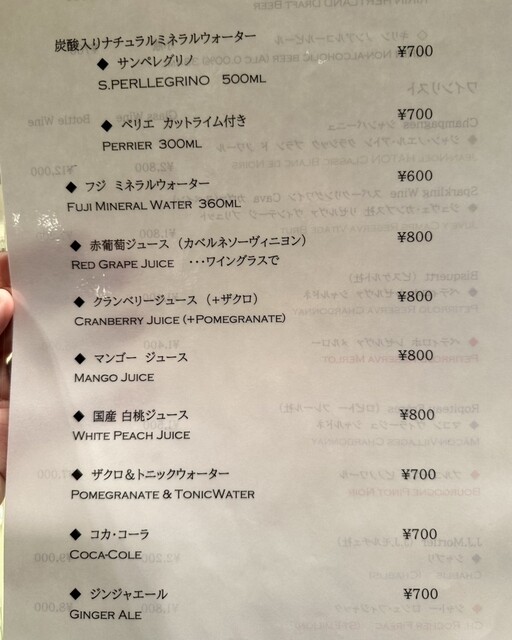 炭酸入りナチュラルミネラルウォーター
◆ サンペレグリノ ¥700
S.PERLLEGRINO 500ML
◆ ペリエ カットライム付き ¥700
PERRIER 300ML
◆ フジ ミネラルウォーター ¥600
FUJI MINERAL WATER 360ML
◆ 赤葡萄ジュース（カベルネソーヴィニヨン） ¥800
RED GRAPE JUICE ･･･ワイングラスで
◆ クランベリージュース（+ザクロ） ¥800
CRANBERRY JUICE (+POMEGRANATE)
◆ マンゴー ジュース ¥800
MANGO JUICE
◆ 国産 白桃ジュース ¥800
WHITE PEACH JUICE
◆ ザクロ＆トニックウォーター ¥700
POMEGRANATE & TONICWATER
◆ コカ・コーラ ¥700
COCA-COLE
◆ ジンジャエール ¥700
GINGER ALE